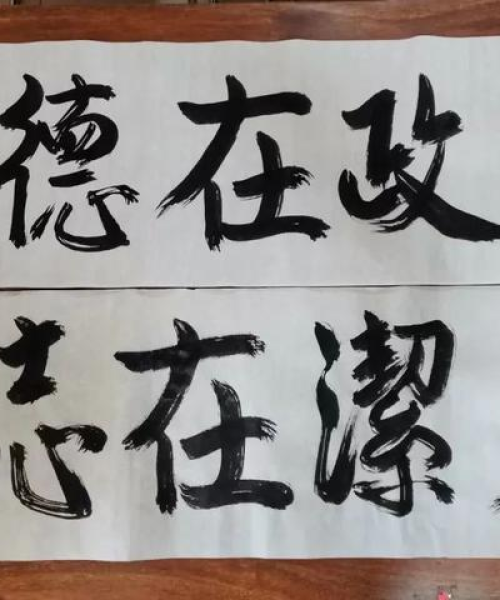 政在德
潔在志